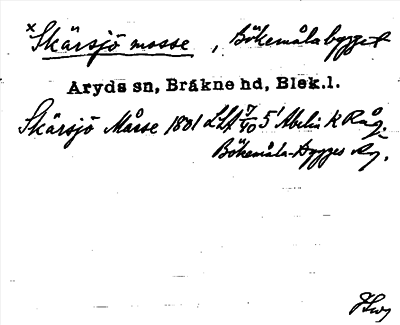 x Skärsjö mosse, Bökemåla bygget
Aryds sn, Bräkne hd, Blek.l.
Skärsjö Måsse 1801 LSA 7/40 5'
Bökemåla-bygges